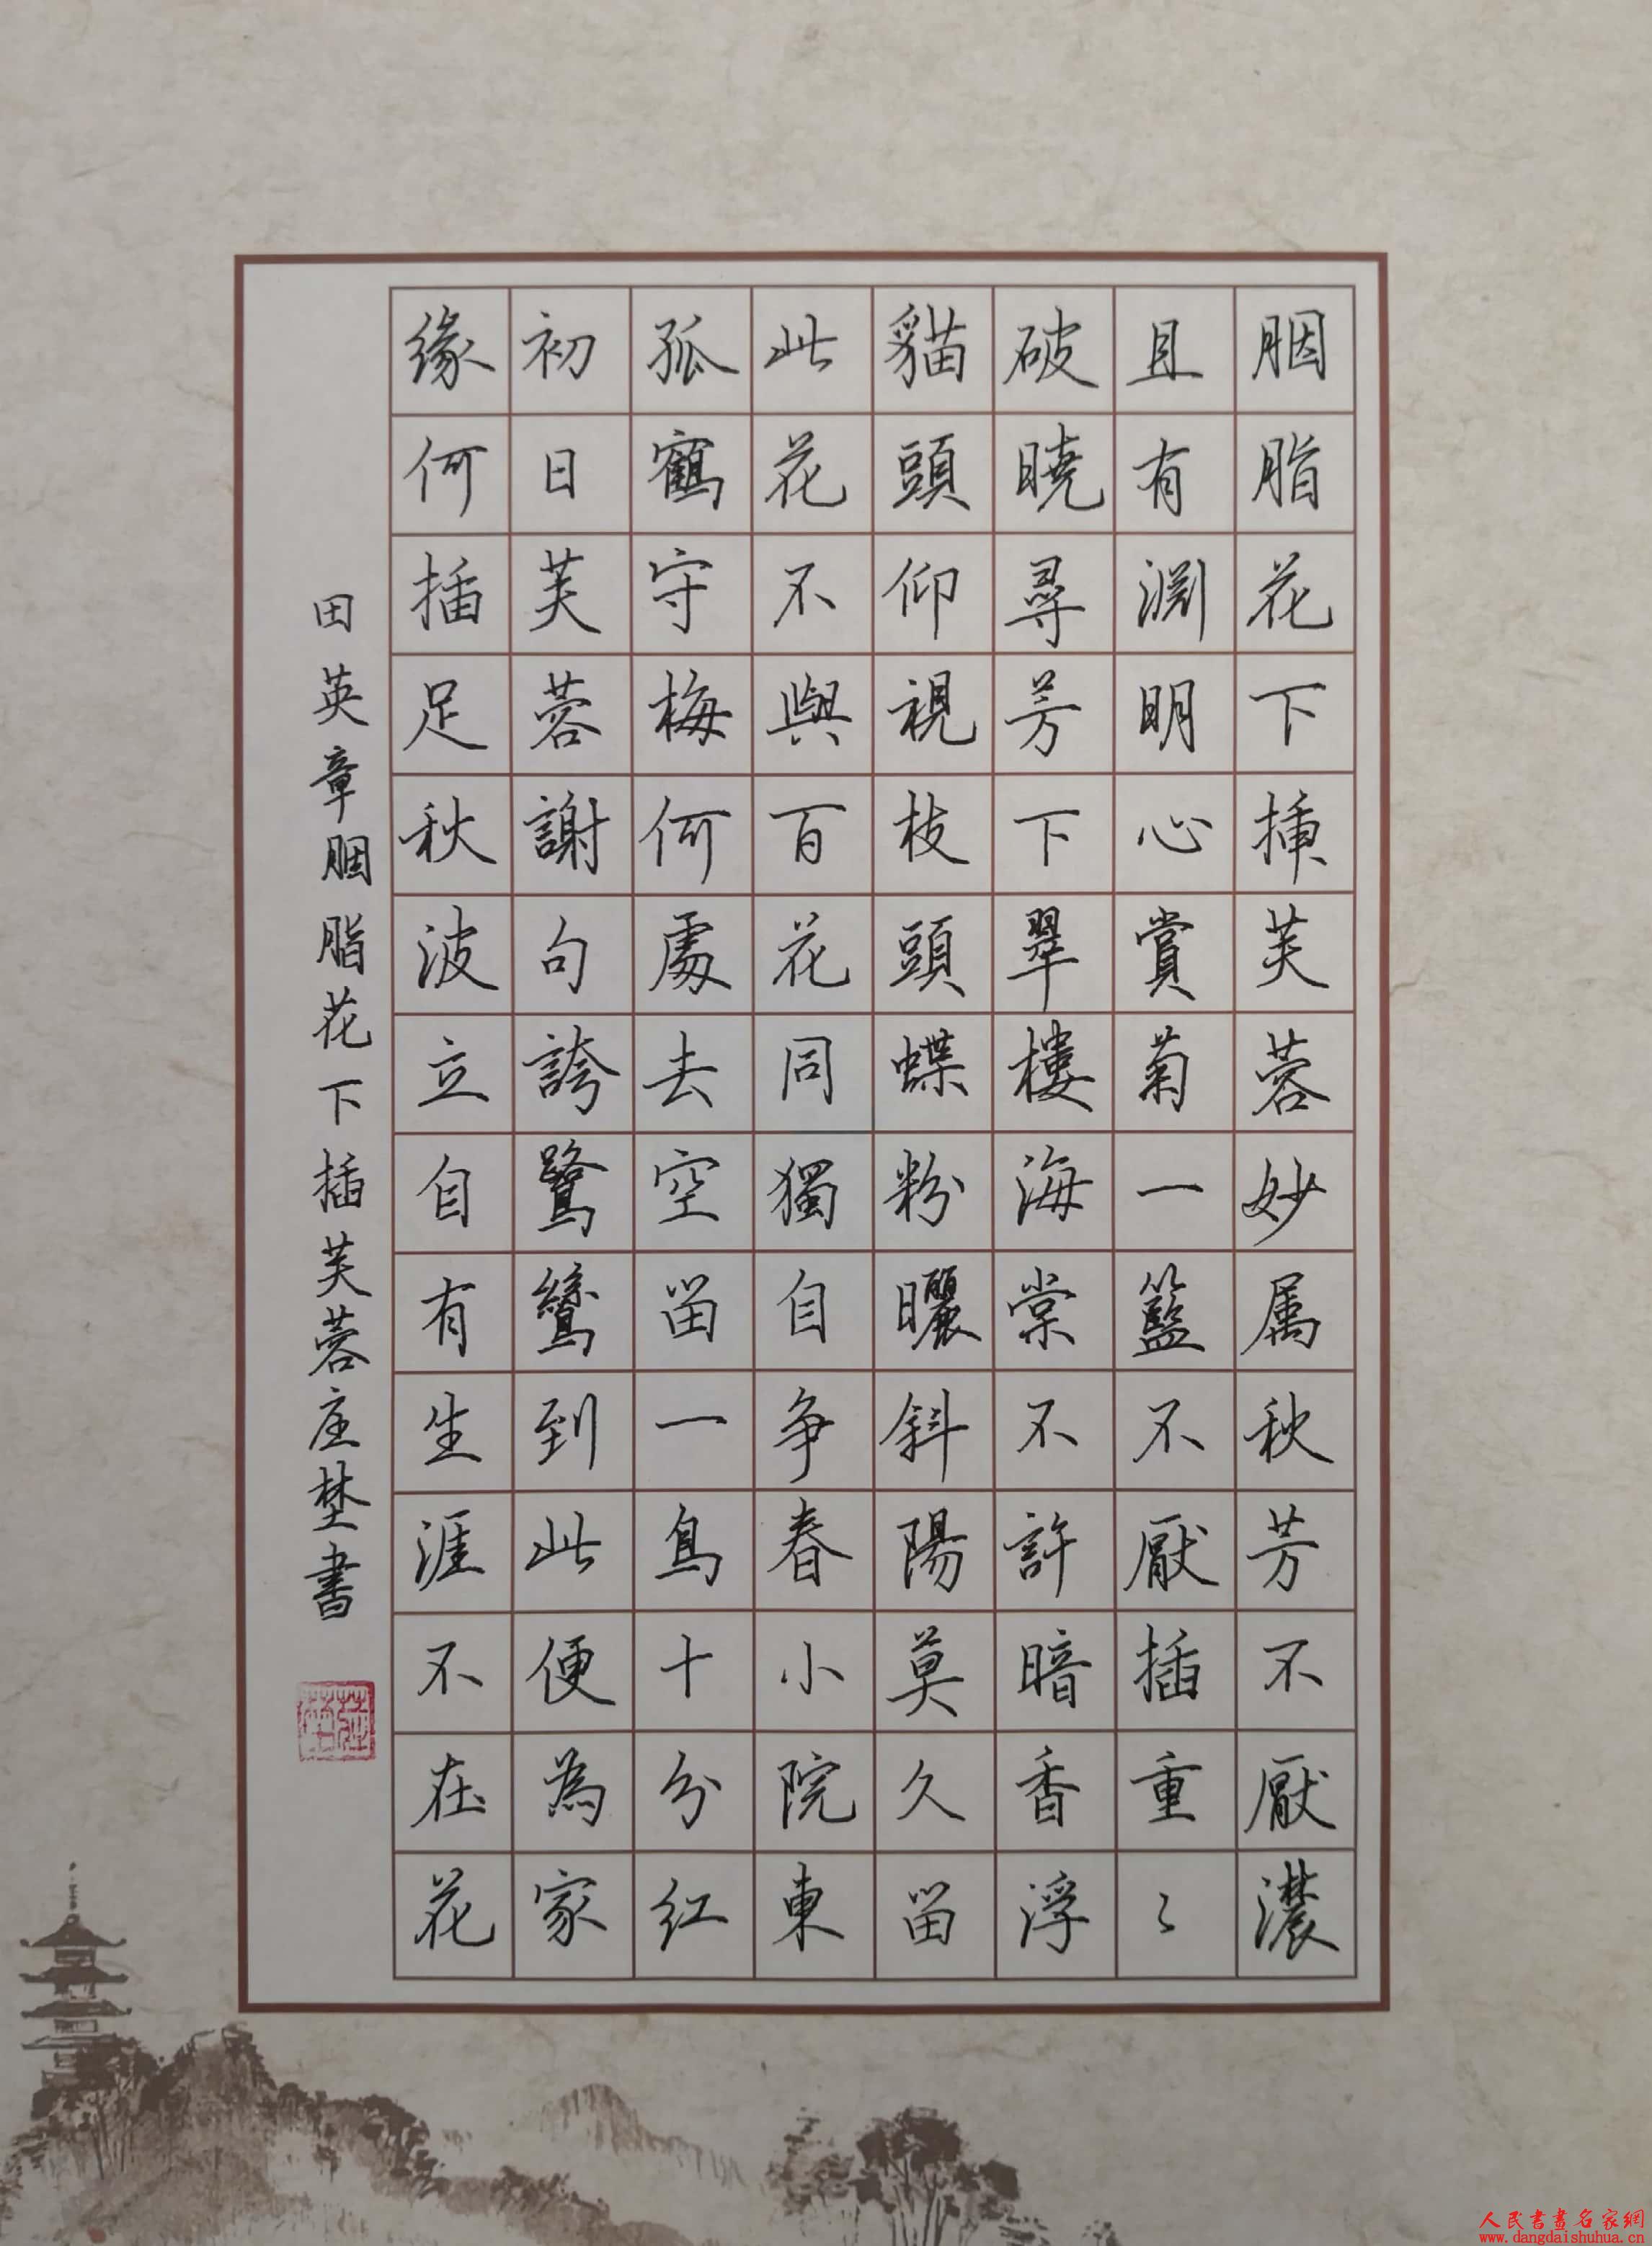 胭脂花下插芙蓉妙属秋芳不厭濃
且有淵明心賞菊一籃不厭插重〻
破曉尋芳下翠樓海棠不許暗香浮
貓頭仰視枝頭蝶粉曬斜陽莫久留
此花不與百花同獨自争春小院東
孤鶴守梅何處去空留一鳥十分红
初日芙蓉謝句誇鷺鸞到此便為家
缘何插足秋波立自有生涯不在花
田英章胭脂花下插芙蓉
書
人民書畫名家網
www.dangdaishuhua.cn